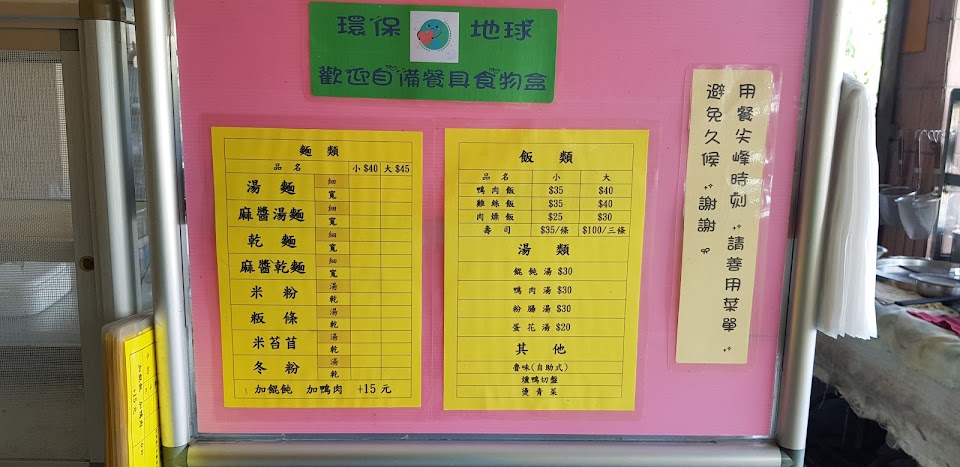 環保 地球
歡迎自備餐具食物盒
麵類
品名 小$40 大$45
湯麵 細 寬
麻醬湯麵 細 寬
乾麵 細 寬
麻醬乾麵 細 寬
米粉 湯 乾
粄條 湯 乾
米苔苜 湯 乾
冬粉 湯 乾
加餛飩 加鴨肉 +15元
飯類
品名 小 大
鴨肉飯 $35 $40
雞絲飯 $35 $40
肉燥飯 $25 $30
壽司 $35/條 $100/三條
湯類
餛飩湯$30
鴨肉湯$30
粉腸湯$30
蛋花湯$20
其他
魯味(自助式)
燻鴨切盤
燙青菜
用餐尖峰時刻 請善用菜單
避免久候 謝謝